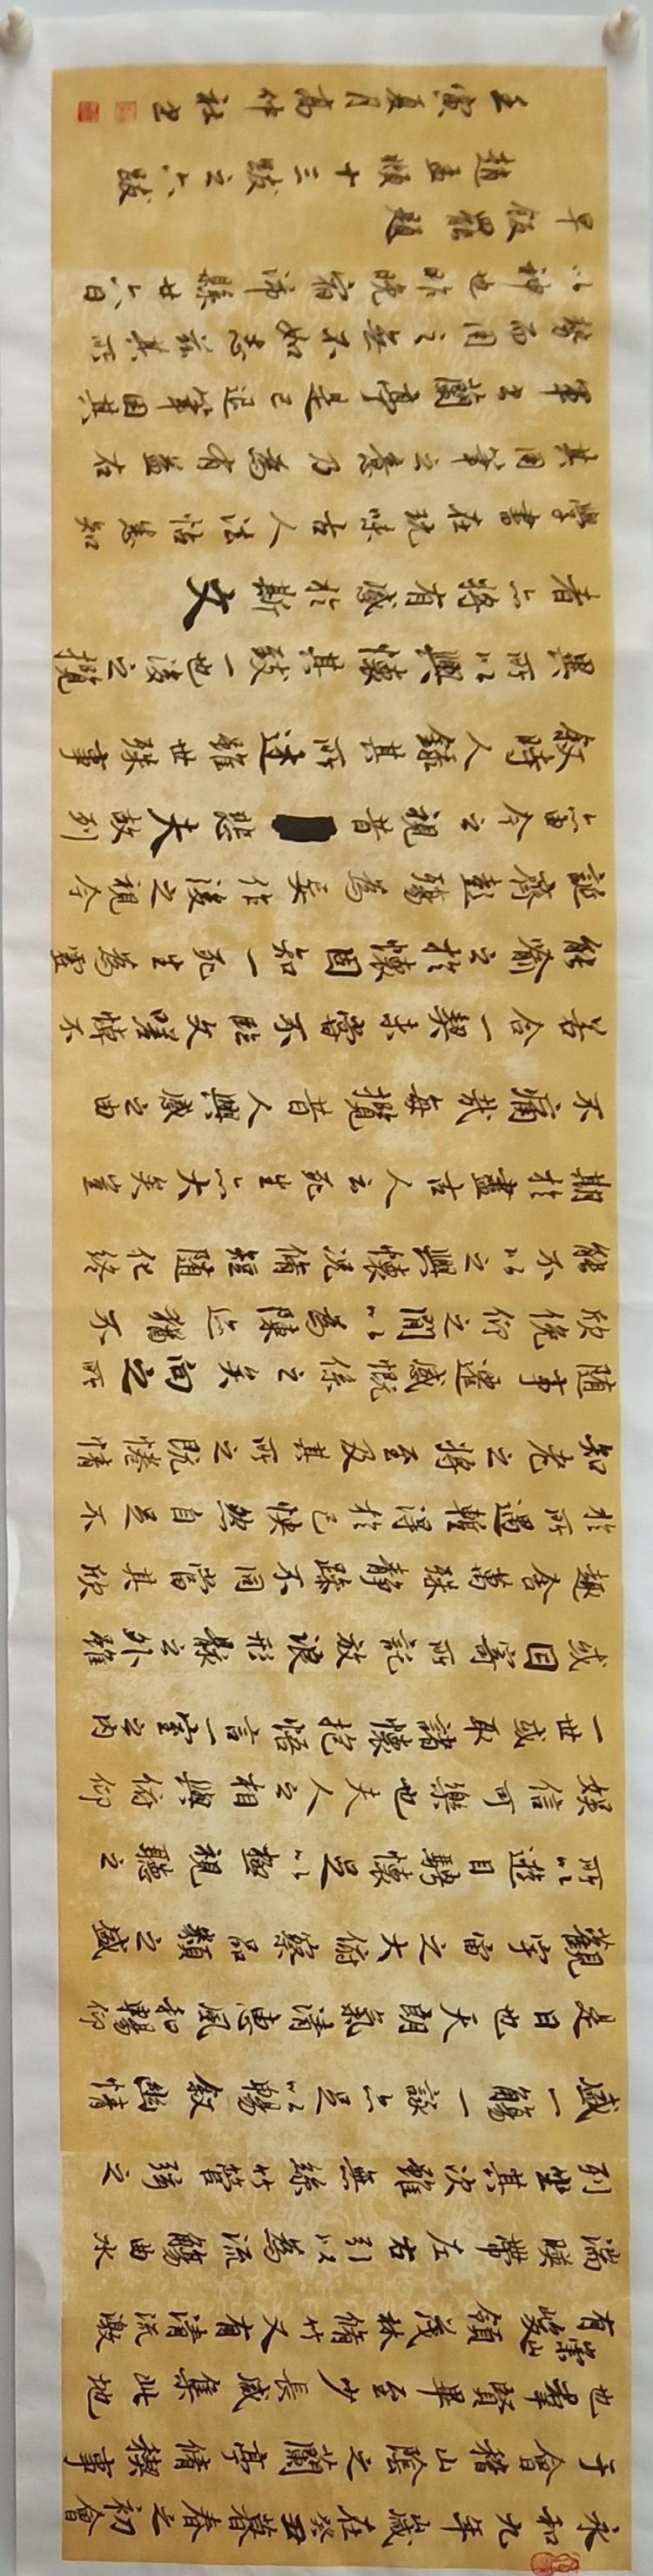 永和九年歲在癸丑暮春之初會
于會稽山陰之蘭亭脩稧事
也羣賢畢至少長咸集此地
有崇山峻領茂林脩竹又有清流激
湍暎帶左右引以為流觴曲水
列坐其次雖無絲竹管弦之
盛一觴一詠亦足以暢敘幽情
是日也天朗氣清惠風和暢仰
觀宇宙之大俯察品類之盛
所以遊目騁懷足以極視聽之
娛信可樂也夫人之相與俯仰
一世或取諸懷抱悟言一室之內
或因寄所託放浪形骸之外雖
趣舍萬殊靜躁不同當其欣
於所遇暫得於己快然自足不
知老之將至及其所之既惓情
隨事遷感慨係之矣向之所
欣俛仰之閒以為陳迹猶不
能不以之興懷況脩短隨化終
期於盡古人云死生亦大矣豈
不痛哉每攬昔人興感之由
若合一契未嘗不臨文嗟悼不
能喻之於懷固知一死生為虛
誕齊彭殤為妄作後之視今
亦由今之視昔悲夫故列
敘時人錄其所述雖世殊事
異所以興懷其致一也後之攬
者亦將有感於斯文
學書在玩味古人法帖悉知
其用筆之意乃為有益右
軍書蘭亭是已退筆因其
勢而用之無不如志茲其所
以神也昨晚宿沛縣廿六日
早飯罷題
趙孟頫十三跋之六跋
壬寅夏月高仲社書